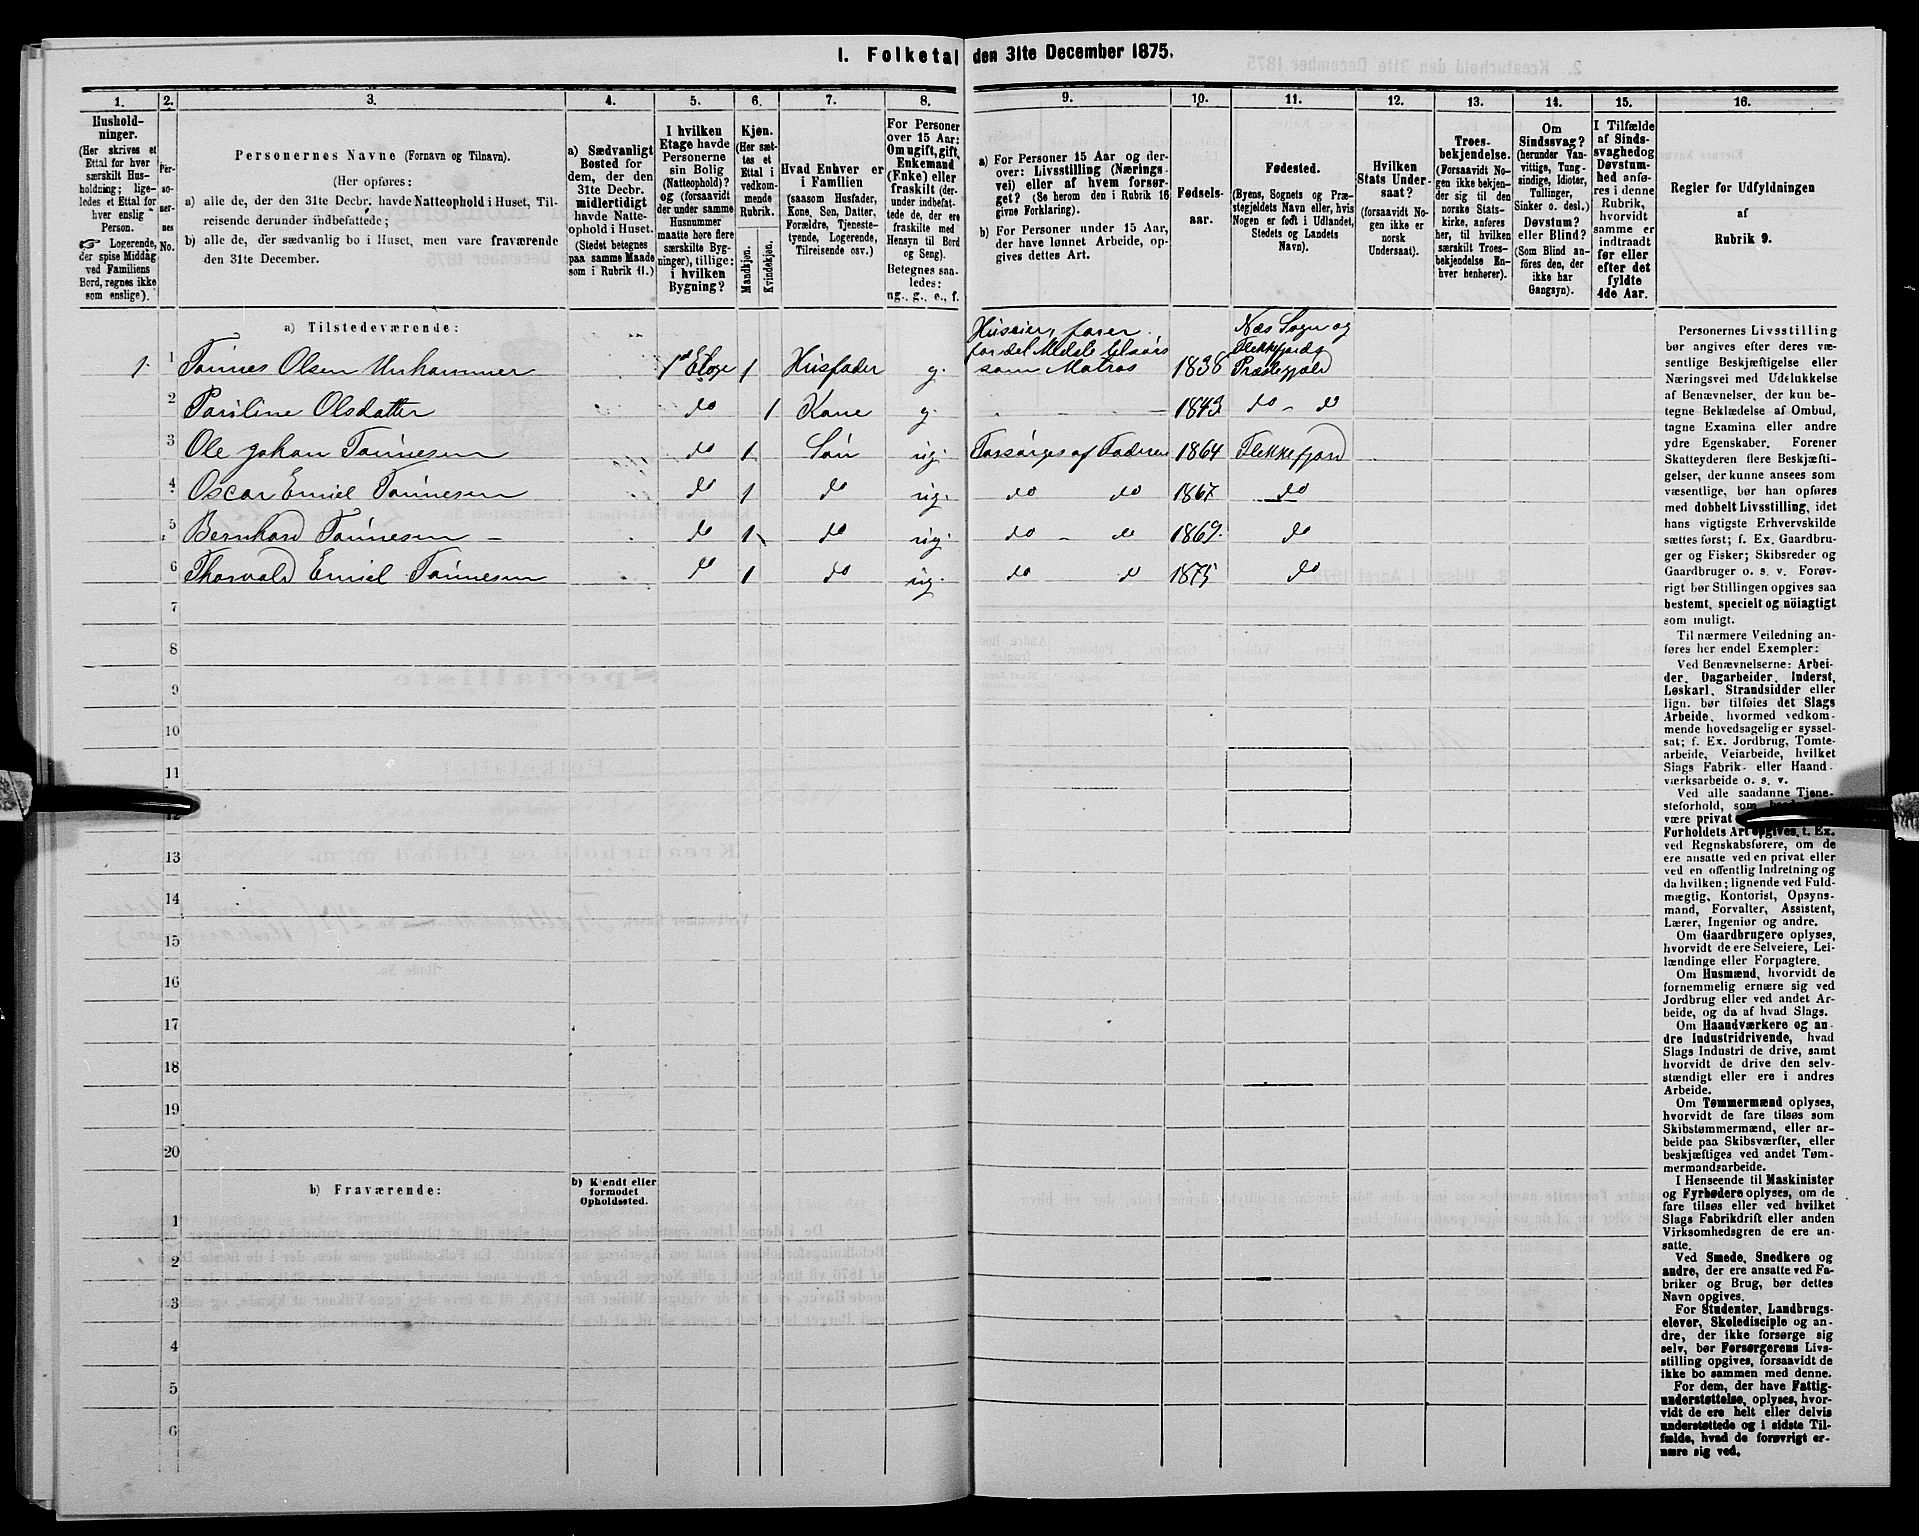 1. Folketal den 31te December 1875.
1.
2.
3.
4.
5.
6.
7.
8.
9.
10.
11.
12.
13.
14.
15.
16.
Hushold-
ninger.
(Her skrives et
Ettal for hver
særskilt Hus-
holdning; lige-
ledes et Ettal for
hver enslig
Person.
☞ Logerende,
der spise Middag
ved Familiens
Bord, regnes ikke
som enslige).
Per-
so-
ner-
nes
No.
Personernes Navne (Fornavn og Tilnavn).
(Her opføres:
a) alle de, der den 31te Decbr. havde Natteophold i Huset, Til-
reisende derunder indbefattede;
b) alle de, der sædvanlig bo i Huset, men vare fraværende
den 31te December.
a) Sædvanligt
Bosted for
dem, der den
31te Decbr.
midlertidigt
havde Natte-
ophold i Huset.
(Stedet betegnes
paa samme Maade
som i Rubrik 11.)
I hvilken
Etage havde
Personerne
sin Bolig
(Natteophold)?
og (forsaavidt
der under samme
Husnummer
maatte høre flere
særskilte Byg-
ninger), tillige:
i hvilken
Bygning?
Kjøn.
(Her sæt-
tes et
Ettal i
vedkom-
mende
Rubrik.
Mandkjøn.
Kvindekjøn.
Hvad Enhver er
i Familien
(saasom Husfader,
Kone, Søn, Datter,
Forældre, Tjeneste-
tyende, Logerende,
Tilreisende osv.)
For Personer
over 15 Aar:
Om ugift, gift,
Enkemand
(Enke) eller
fraskilt (der-
under indbefat-
tede de, der ere
fraskilte med
Hensyn til Bord
og Seng).
Betegnes saa-
ledes:
ug., g., e., f.
a) For Personer 15 Aar og der-
over: Livsstilling (Nærings-
vei) eller af hvem forsør-
get? (Se herom den i Rubrik 16
givne Forklaring).
b) For Personer under 15 Aar,
der have lønnet Arbeide, op-
gives dettes Art.
Fødsels-
aar.
Fødested.
(Byens, Sognets og Præ-
stegjeldets Navn eller, hvis
Nogen er født i Udlandet,
Stedets og Landets
Navn).
Hvilken
Stats Under-
saat?
(forsaavidt No-
gen ikke er
norsk
Undersaat).
Troes-
bekjendelse.
(Forsaavidt No-
gen ikke bekjen-
der sig til den
norske Stats-
kirke, anføres
her, til hvilken
særskilt Troes-
bekjendelse En-
hver henhører).
Om
Sindssvag?
(herunder Van-
vittige, Tung-
sindige, Idioter,
Tullinger,
Sinker o. desl.)
Døvstum?
eller Blind?
(Som Blind an-
føres den, der
ikke har
Gangsyn).
I Tilfælde
af Sinds-
svaghed og
Døvstum-
hed anfø-
res i denne
Rubrik,
hvorvidt
samme er
indtraadt
før eller
efter det
fyldte
4de Aar.
Regler for Udfyldningen
af
Rubrik 9.
a) Tilstedeværende:
1. 1 Tønnes Olsen Unhammer 1ste Etage 1 Husfader g. Huseier, farer for det Meste tilsøes som Matros 1838 Næs Sogn og Flekkefjords Præstegjæld
2 Pauline Olsdatter do 1 Kone g. 1843 do - do
3 Ole Johan Tønnesen do 1 Søn ug. Forsørges af Faderen 1864 Flekkefjord
4 Oscar Emiel Tønnesen do 1 do ug. do do 1867. do
5 Bernhard Tønnesen - do 1 do ug. do - do 1869. do
6 Thorvald Emiel Tønnesen do 1 do ug. do do 1875 do
7
8
9
10
11
12
13
14
15
16
17
18
19
20
b) Fraværende:
b) Kjendt eller
formodet
Opholdssted.
1
2
3
4
5
6
Personernes Livsstilling
bør angives efter deres væ-
sentlige Beskjæftigelse eller
Næringsvei med Udelukkelse
af Benævnelser, der kun be-
tegne Beklædelse af Ombud,
tagne Examina eller andre
ydre Egenskaber. Forener
Skatteyderen flere Beskjæfti-
gelser, der kunne ansees som
væsentlige, bør han opføres
med dobbelt Livsstilling, idet
hans vigtigste Erhvervskilde
sættes først; f. Ex. Gaardbru-
ger og Fisker; Skibsreder og
Gaardbruger o. s. v. Forøv-
rigt bør Stillingen opgives saa
bestemt, specielt og nöiagtigt
som muligt.
Til nærmere Veiledning an-
føres her endel Exempler:
Ved Benævnelserne: Arbei-
der, Dagarbeider, Inderst,
Løskarl, Strandsidder eller
lign. bør tilføies det Slags
Arbeide, hvormed vedkom-
mende hovedsagelig er syssel-
sat; f. Ex. Jordbrug, Tomte-
arbeide, Veiarbeide, hvilket
Slags Fabrik- eller Haand-
værksarbeide o. s. v.
Ved alle saadanne Tjene-
steforhold, som
være privat
Forholdets Art opgives, t. Ex.
ved Regnskabsførere, om de
ere ansatte ved en privat eller
ved en offentlig Indretning og
da hvilken; lignende ved Fuld-
mægtig, Kontorist, Opsyns-
mand, Forvalter, Assistent,
Lærer, Ingeniør og andre.
Om Gaardbrugere oplyses,
hvorvidt de ere Selveiere, Lei-
lændinge eller Forpagtere.
Om Husmænd, hvorvidt de
fornemmelig ernære sig ved
Jordbrug eller ved andet Ar-
beide, og da af hvad Slags.
Om Haandværkere og an-
dre Industridrivende, hvad
Slags Industri de drive, samt
hvorvidt de drive den selv-
stændigt eller ere i andres
Arbeide.
Om Tømmermænd oplyses,
hvorvidt de fare tilsøs som
Skibstømmermænd, eller ar-
beide paa Skibsværfter, eller
beskjæftiges ved andet Tøm-
mermandsarbeide.
I Henseende til Maskinister
og Fyrbødere oplyses, om de
fare tilsøs eller ved hvilket
Slags Fabrikdrift eller anden
Virksomhedsgren de ere an-
satte.
Ved Smede, Snedkere og
andre, der ere ansatte ved Fa-
briker og Brug, bør dettes
Navn opgives.
For Studenter, Landbrugs-
elever, Skoledisciple og an-
dre, der ikke forsørge sig
selv, bør Forsørgerens Livs-
stilling opgives, forsaavidt de
ikke bo sammen med denne.
For dem, der have Fattig-
understøttelse, oplyses, hvor-
vidt de ere helt eller delvis
understøttede og i sidste Til-
fælde, hvad de forøvrigt er-
nære sig ved.